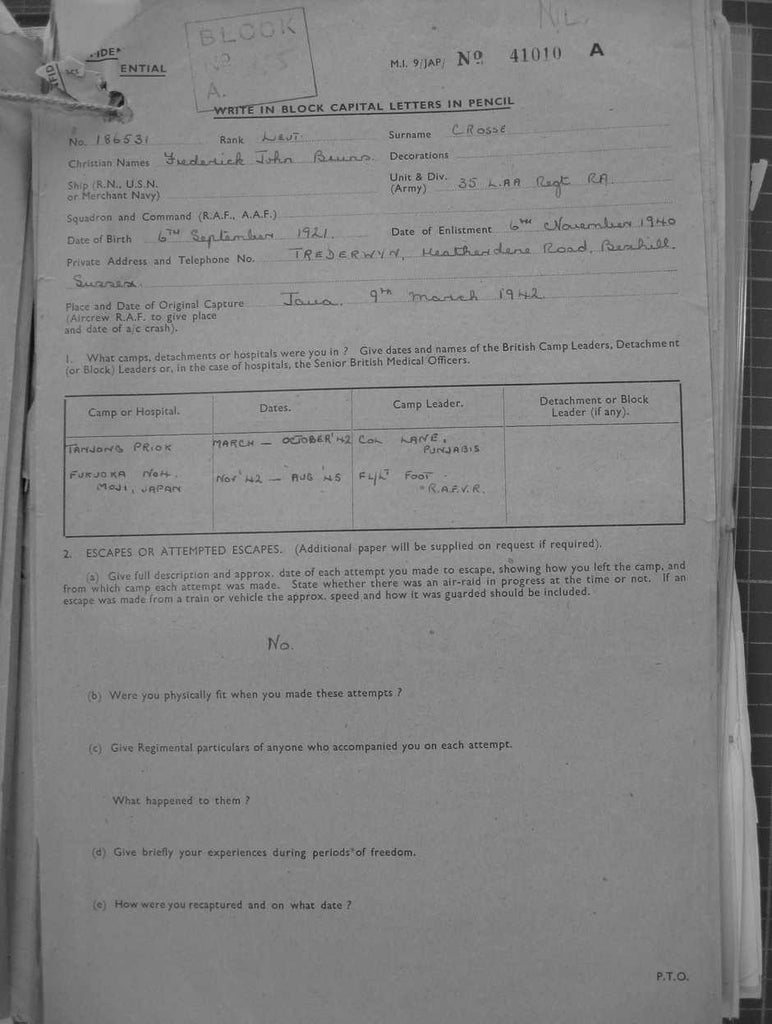 BLOCK
A.
NIL.
ENTIAL
M.I. 9/JAP/ No 41010 A
WRITE IN BLOCK CAPITAL LETTERS IN PENCIL
No. 186531 Rank LIEUT. Surname CROSSE
Christian Names Frederick John Decorations
Ship (R.N., U.S.N. or Merchant Navy)
Unit & Div. (Army) 35 L.AA Regt RA.
Squadron and Command (R.A.F., A.A.F.)
Date of Birth 6TH September 1921. Date of Enlistment 6TH November 1940
Private Address and Telephone No. TREDERWYN, Heatherdene Road, Bexhill.
Sussex.
Place and Date of Original Capture Java. 9th March 1942.
(Aircrew R.A.F. to give place
and date of a/c crash).
1. What camps, detachments or hospitals were you in ? Give dates and names of the British Camp Leaders, Detachment
(or Block) Leaders or, in the case of hospitals, the Senior British Medical Officers.
Camp or Hospital. Dates. Camp Leader. Detachment or Block Leader (if any).
TANJONG PRIOK MARCH — OCTOBER '42 COL LANE, PUNJABIS
FUKUOKA No 4. MOJI, JAPAN Nov '42 — AUG 45 FL/LT FOOT R.A.F.V.R.
2. ESCAPES OR ATTEMPTED ESCAPES. (Additional paper will be supplied on request if required).
(a) Give full description and approx. date of each attempt you made to escape, showing how you left the camp, and
from which camp each attempt was made. State whether there was an air-raid in progress at the time or not. If an
escape was made from a train or vehicle the approx. speed and how it was guarded should be included.
No.
(b) Were you physically fit when you made these attempts ?
(c) Give Regimental particulars of anyone who accompanied you on each attempt.
What happened to them ?
(d) Give briefly your experiences during periods of freedom.
(e) How were you recaptured and on what date ?
P.T.O.